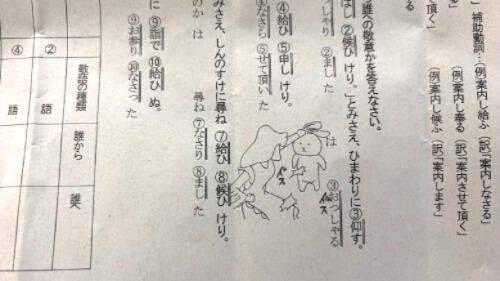 補助動詞…(例案内し給ふ (訳)「案内しなさる」
(例案内し奉る (訳)「案内させて頂く」
(例案内し候ふ (訳)「案内します」
て頂く」
る
誰への敬意かを答えなさい。
ばし ②候ひ けり。」とみさえ、ひまわりに③仰す。
っしゃり ②まし た は ③おっしゃる
④給ひ ⑤申し けり。
④なさら ⑤せて頂い た
みさえ、しんのすけに尋ね ⑦給ひ ⑧候ひ けり。
のか は 尋ね ⑦なさり ⑧まし た
に ⑨詣で ⑩給ひ ぬ。
⑨お参り ⑩なさっ た
敬語の種類 誰から 誰へ
② 語
④ 語